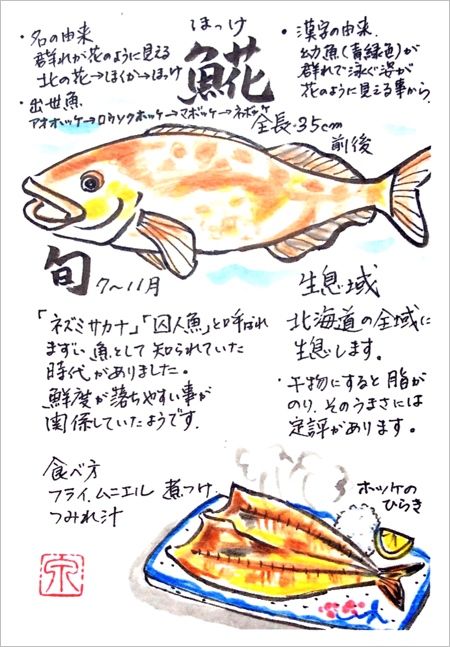 ほっけ
𩸽
・名の由来
群れが花のように見える
北の花→ほくか→ほっけ
・出世魚
アオボッケ→ロウソクホッケ→マボッケ→ネボッケ
・漢字の由来
幼魚(青緑色)が
群れで泳ぐ姿が
花のように見える事から。
全長・35cm
前後
旬
7〜11月
「ネズミサカナ」「囚人魚」と呼ばれ
まずい魚として知られていた
時代がありました。
鮮度が落ちやすい事が
関係していたようです。
生息域
北海道の全域に
生息します。
・干物にすると脂が
のり、そのうまさには
定評があります。
食べ方
フライ、ムニエル 煮つけ、
つみれ汁
ホッケの
ひらき